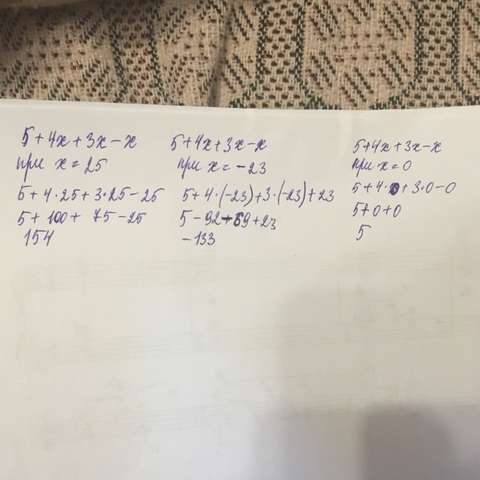 5+4x+3x-x
при x=25
5+4·25+3·25-25
5+100+75-25
154
5+4x+3x-x
при x=-23
5+4·(-23)+3·(-23)+23
5-92-69+23
-133
5+4x+3x-x
при x=0
5+4·0+3·0-0
5+0+0
5